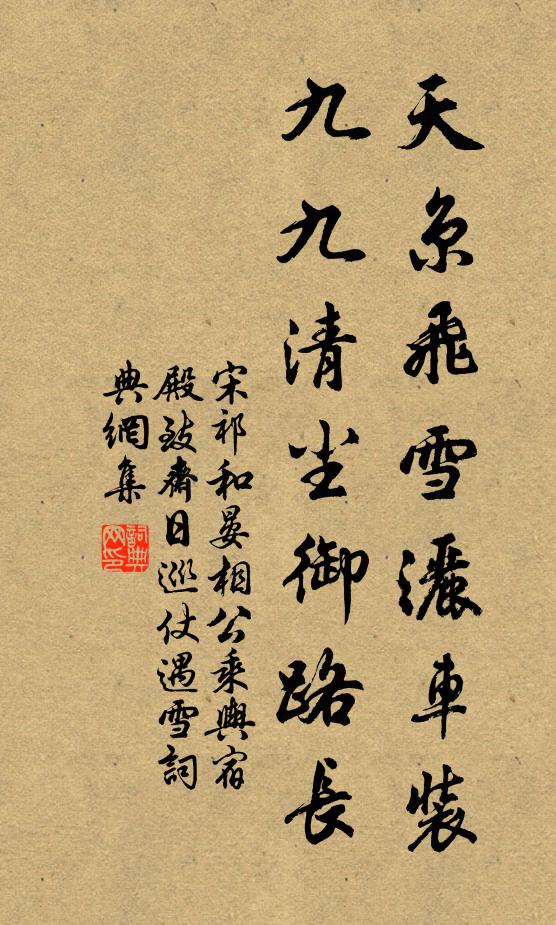 天京飛雪灑車裝
九九清尘御路長
宋祁和晏相公乘輿宿
殿致齋日巡仗遇雪詞
典網集
詞典
网印